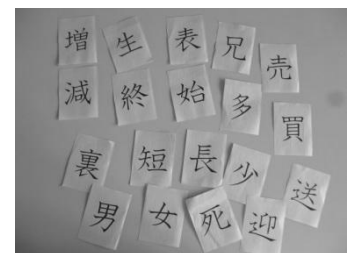 増 生 表 兄 売
減 終 始 多 買
裏 短 長 少 送
男 女 死 迎